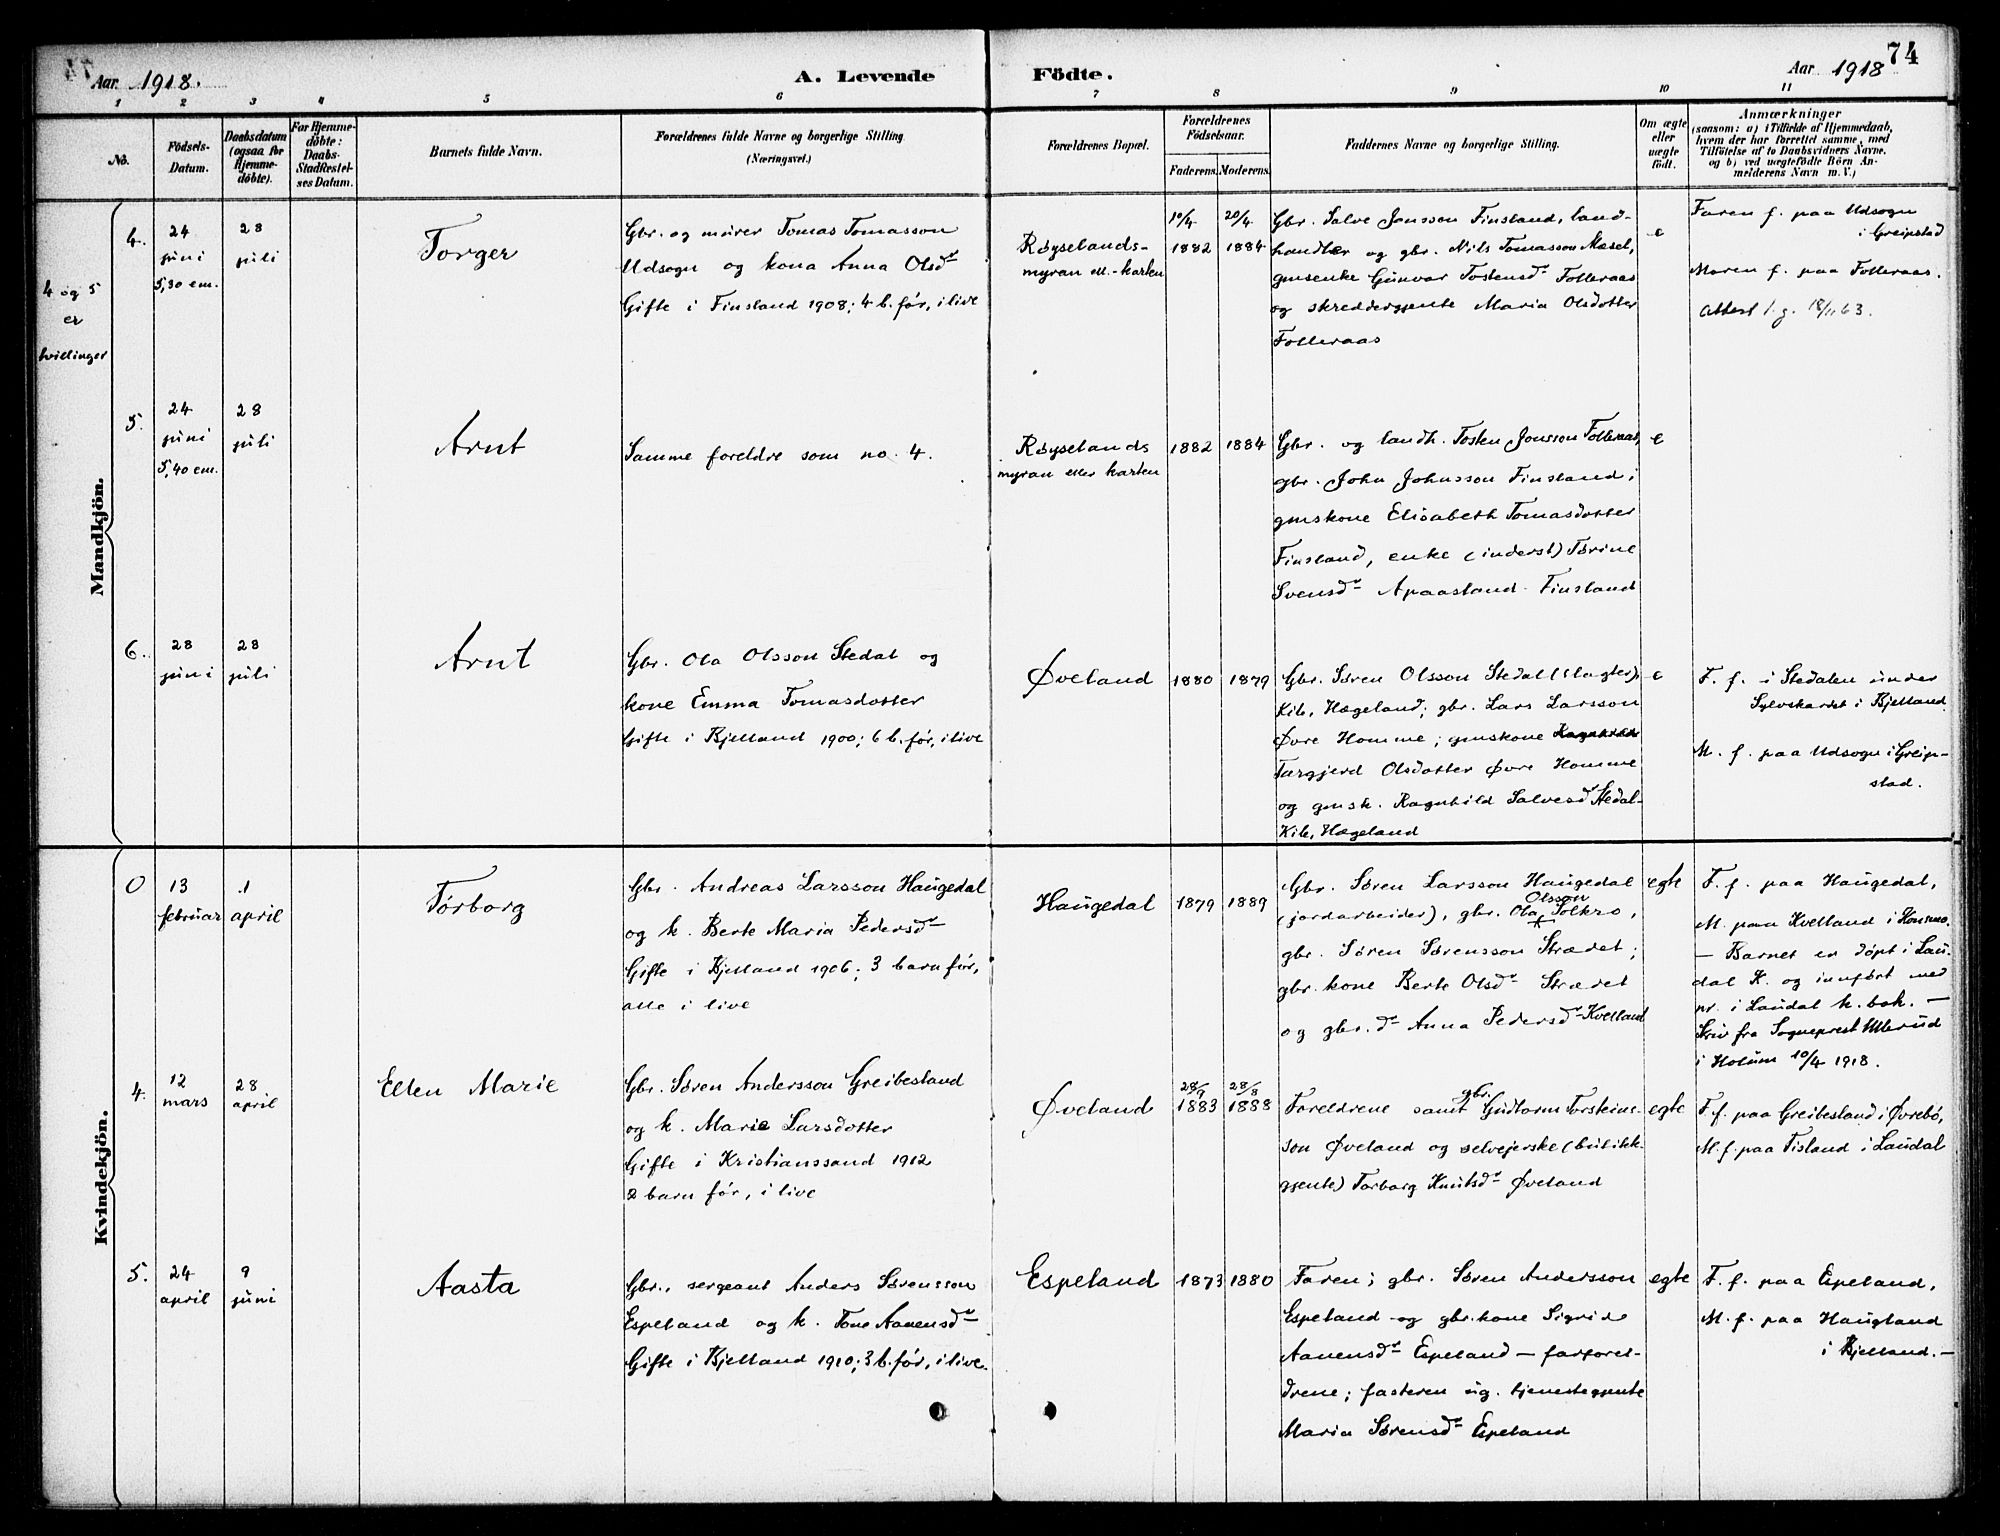 Aar 1918. A. Levende Födte. Aar 1918 74
1 2 3 4 5 6 7 8 9 10 11
No.
Födsels-
Datum.
Daabsdatum
(ogsaa for
Hjemme-
döbte).
For Hjemme-
döbte:
Daabs-
Stadfæstel-
ses Datum.
Barnets fulde Navn.
Forældrenes fulde Navne og borgerlige Stilling.
(Næringsvei.)
Forældrenes Bopæl.
Forældrenes
Födselsaar.
Faderens. Moderens.
Faddernes Navne og borgerlige Stilling.
Om ægte
eller
uægte
födt.
Anmærkninger
(saasom: a) i Tilfælde af Hjemmedaab,
hvem der har forrettet samme, med
Tilföielse af to Daabsvidners Navne.
og b) ved uægtefödte Börn An-
melderens Navn m. V.)
Mandkjön.
4 og 5
er
tvillinger
4.
24
juni
5,30 em.
28
juli
Torger
Gbr. og murer Tomas Tomasson
Udsogn og kona Anna Olsd
Gifte i Finsland 1908; 4 b. før, i live
Røyselands-
myran el.-karten
10/4
1882
20/4
1884
Gbr. Salve Jonsson Finsland, land-
handler og gbr. Nils Tomasson Mæsel,
gmsenke Gunvor Tostensd Folleraas
og skreddergjente Maria Olsdotter
Folleraas
e
Faren f. paa Udsogn
i Greipstad
Moren f. paa Folleraas.
Attest 18/11 63.
5.
24
juni
5,40 em.
28
juli
Arnt
Samme foreldre som no. 4.
Røyselands
myran eller karten
1882
1884
Gbr. og landh. Tosten Jonsson Folleraas,
gbr. John Johnsson Finsland;
gmskone Elisabeth Tomasdotter
Finsland, enke (inderst) Tørine
Svensd Apaasland Finsland
e
6.
28
juni
28
juli
Arnt
Gbr. Ola Olsson Stedal og
kone Emma Tomasdotter
Gifte i Bjelland 1900; 6 b. før, i live
Øveland
1880
1879
Gbr. Søren Olsson Stedal (slagter),
Kile, Hægeland; gbr. Lars Larsson
Øvre Homme; gmskone
Targjerd Olsdotter Øvre Homme
og gmsk. Ragnhild Salvesd Stedal-
Kile, Hægeland
e
F. f. i Stedalen under
Sylvskardet i Bjelland
M. f. paa Udsogn i Greip-
stad.
Kvindekjön.
0
13
februar
1
april
Tørborg
Gbr. Andreas Larsson Haugedal
og k. Berte Maria Pedersd
Gifte i Bjelland 1906; 3 barn før,
alle i live
Haugedal
1879
1889
Gbr. Søren Larsson Haugedal
(jordarbeider), gbr. Ola Olsson Solkro,
gbr. Søren Sørensson Strædet;
gbr. kone Berte Olsd Strædet
og gbr. d Anna Pedersd Kvelland
egte
F. f. paa Haugedal,
M. paa Kvelland i Konsmo.
— Barnet er døpt i Lau-
dal K. og innført med
nr. i Laudal k. bok. —
Skriv fra Sogneprest Ullerud
i Holum 10/4 1918.
4.
12
mars
28
april
Ellen Marie
Gbr. Søren Andersson Greibesland
og k. Marie Larsdotter
Gifte i Kristianssand 1912
2 barn før, i live
Øveland
28/9
1883
28/8
1888
Foreldrene samt gbr. Gudtorm Torsteins-
son Øveland og selvejerske (butikk-
gjente) Torborg Knutsd Øveland
egte
F. f. paa Greibesland i Øvrebø,
M. f. paa Tisland i Laudal
5.
24
april
9
juni
Aasta
Gbr., sergeant Anders Sørensson
Espeland og k. Tone Aanensd
Gifte i Bjelland 1910; 3 b. før, i live.
Espeland
1873
1880
Faren; gbr. Søren Andersson
Espeland og gbr. kone Sigrid
Aanensd Espeland — farforel-
drene; fasteren ug. tjenestegjente
Maria Sørensd Espeland
egte
F. f. paa Espeland,
M. f. paa Haugland
i Bjelland. —